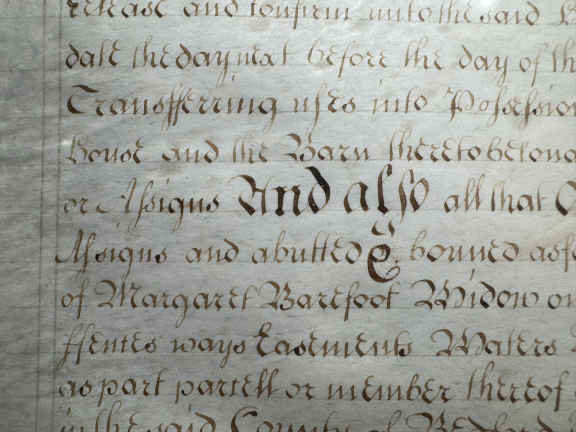 release and confirm unto the said
date the day next before the day of th
Transferring uses into Possession
house and the Barn thereto belong
or Assigns And also all that
Assigns and abutted & bouned as
of Margaret Barefoot Widow on
ffences ways Easements Waters
as part parcell or member thereof
in the said County of Bedford